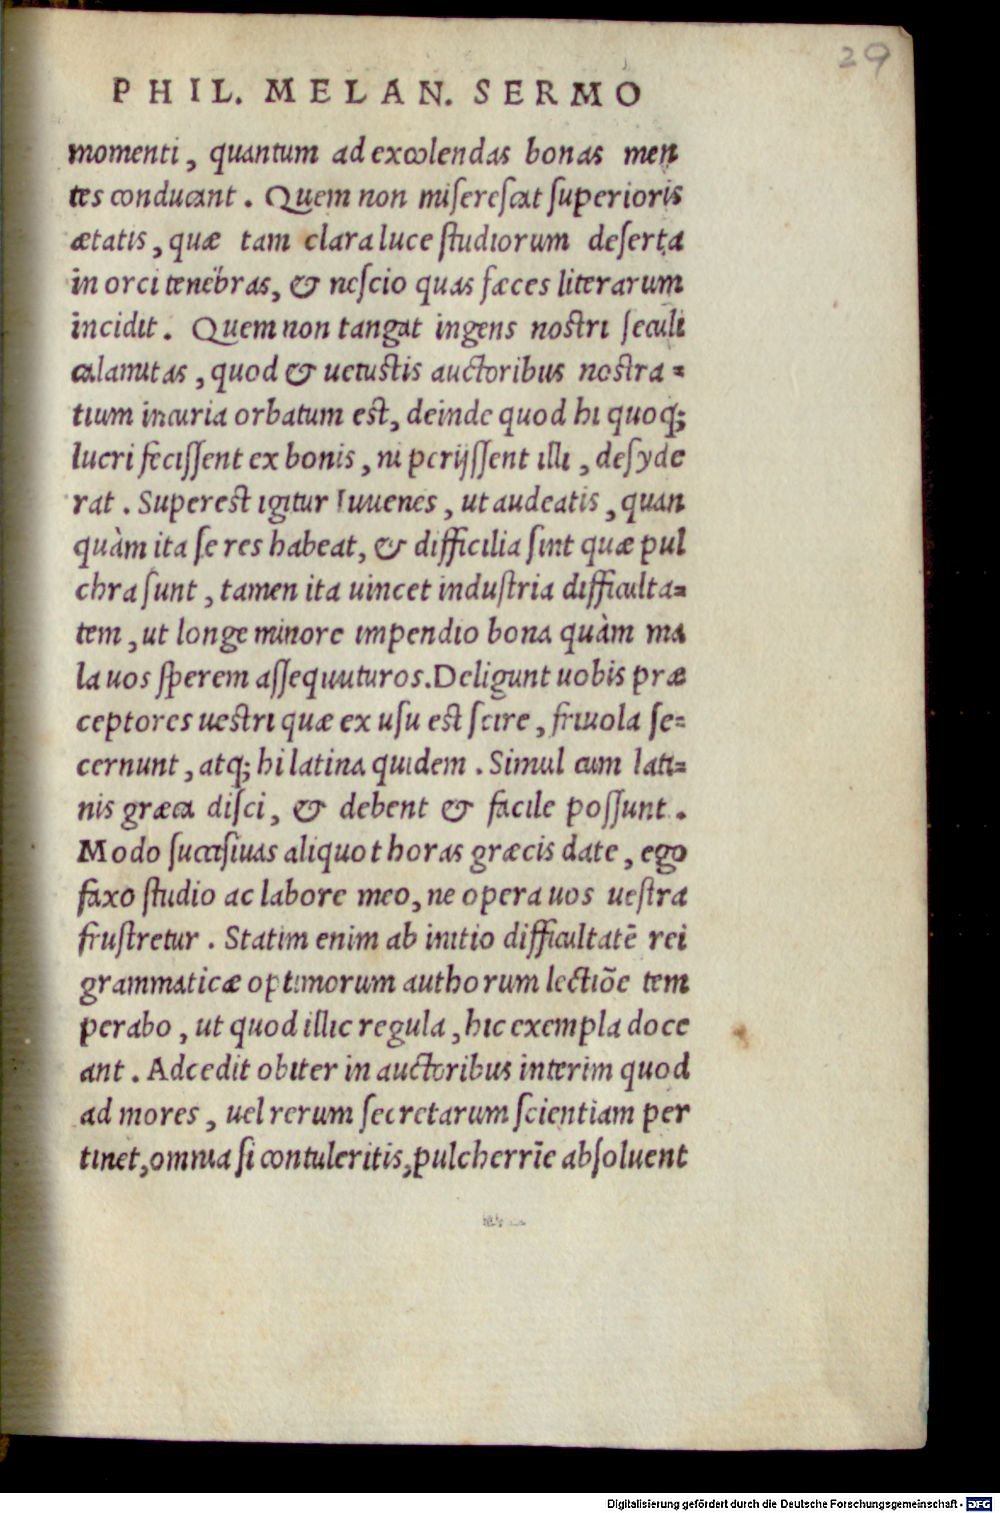 29
PHIL. MELAN. SERMO
momenti, quantum ad excolendas bonas men
tes conducant. Quem non miserescat superioris
ætatis, quæ tam clara luce studiorum deserta
in orci tenebras, & nescio quas fæces literarum
incidit. Quem non tangat ingens nostri seculi
calamitas, quod & uetustis auctoribus nostra-
tium incuria orbatum est, deinde quod hi quoq;
lucri fecissent ex bonis, ni perijssent illi, desyde
rat. Superest igitur Iuuenes, ut audeatis, quan
quàm ita se res habeat, & difficilia sint quæ pul
chra sunt, tamen ita uincet industria difficulta-
tem, ut longe minore impendio bona quàm ma
la uos sperem assequuturos. Deligunt uobis præ
ceptores uestri quæ ex usu est scire, friuola se-
cernunt, atq; hi latina quidem. Simul cum lati-
nis græca disci, & debent & facile possunt.
Modo succisiuas aliquot horas græcis date, ego
faxo studio ac labore meo, ne opera uos uestra
frustretur. Statim enim ab initio difficultatē rei
grammaticæ optimorum authorum lectiōe tem
perabo, ut quod illic regula, hic exempla doce
ant. Adcedit obiter in auctoribus interim quod
ad mores, uel rerum secretarum scientiam per
tinet, omnia si contuleritis, pulcherrīe absoluent
Digitalisierung gefördert durch die Deutsche Forschungsgemeinschaft - DFG